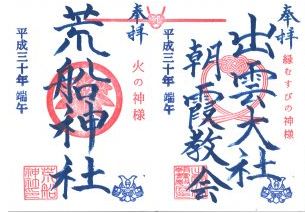 奉拝
縁むすびの神様
出雲大社
朝霞教会
平成三十年 端午
奉拝
火の神様
荒船神社
平成三十年 端午